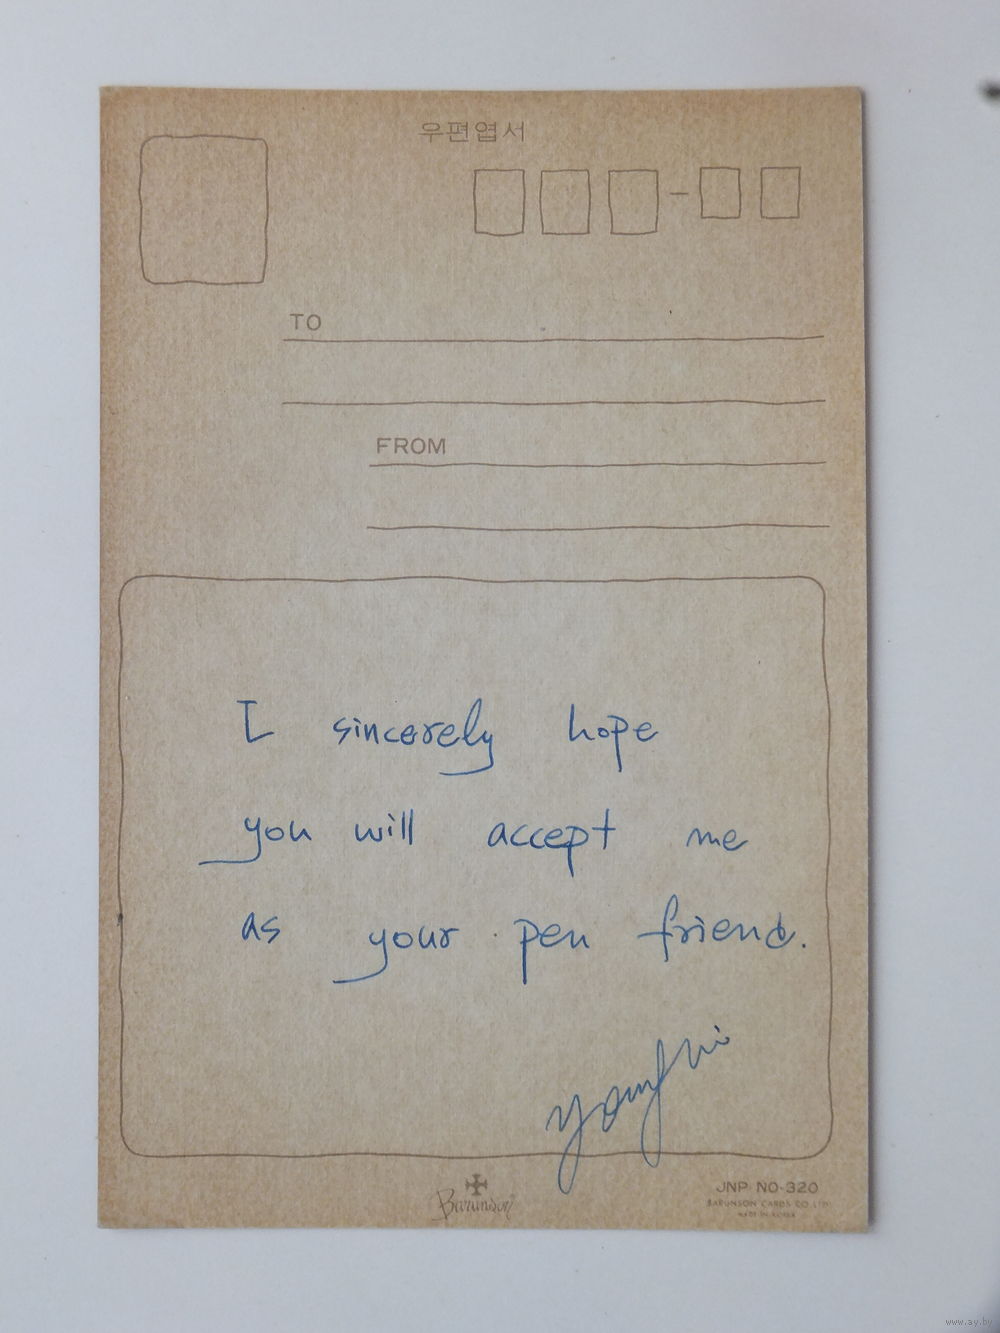 우편엽서
TO
FROM
I sincerely hope
you will accept me
as your pen friend.
Barunson
JNP NO-320
BARUNSON CARDS CO LTD
MADE IN KOREA
www.ay.by